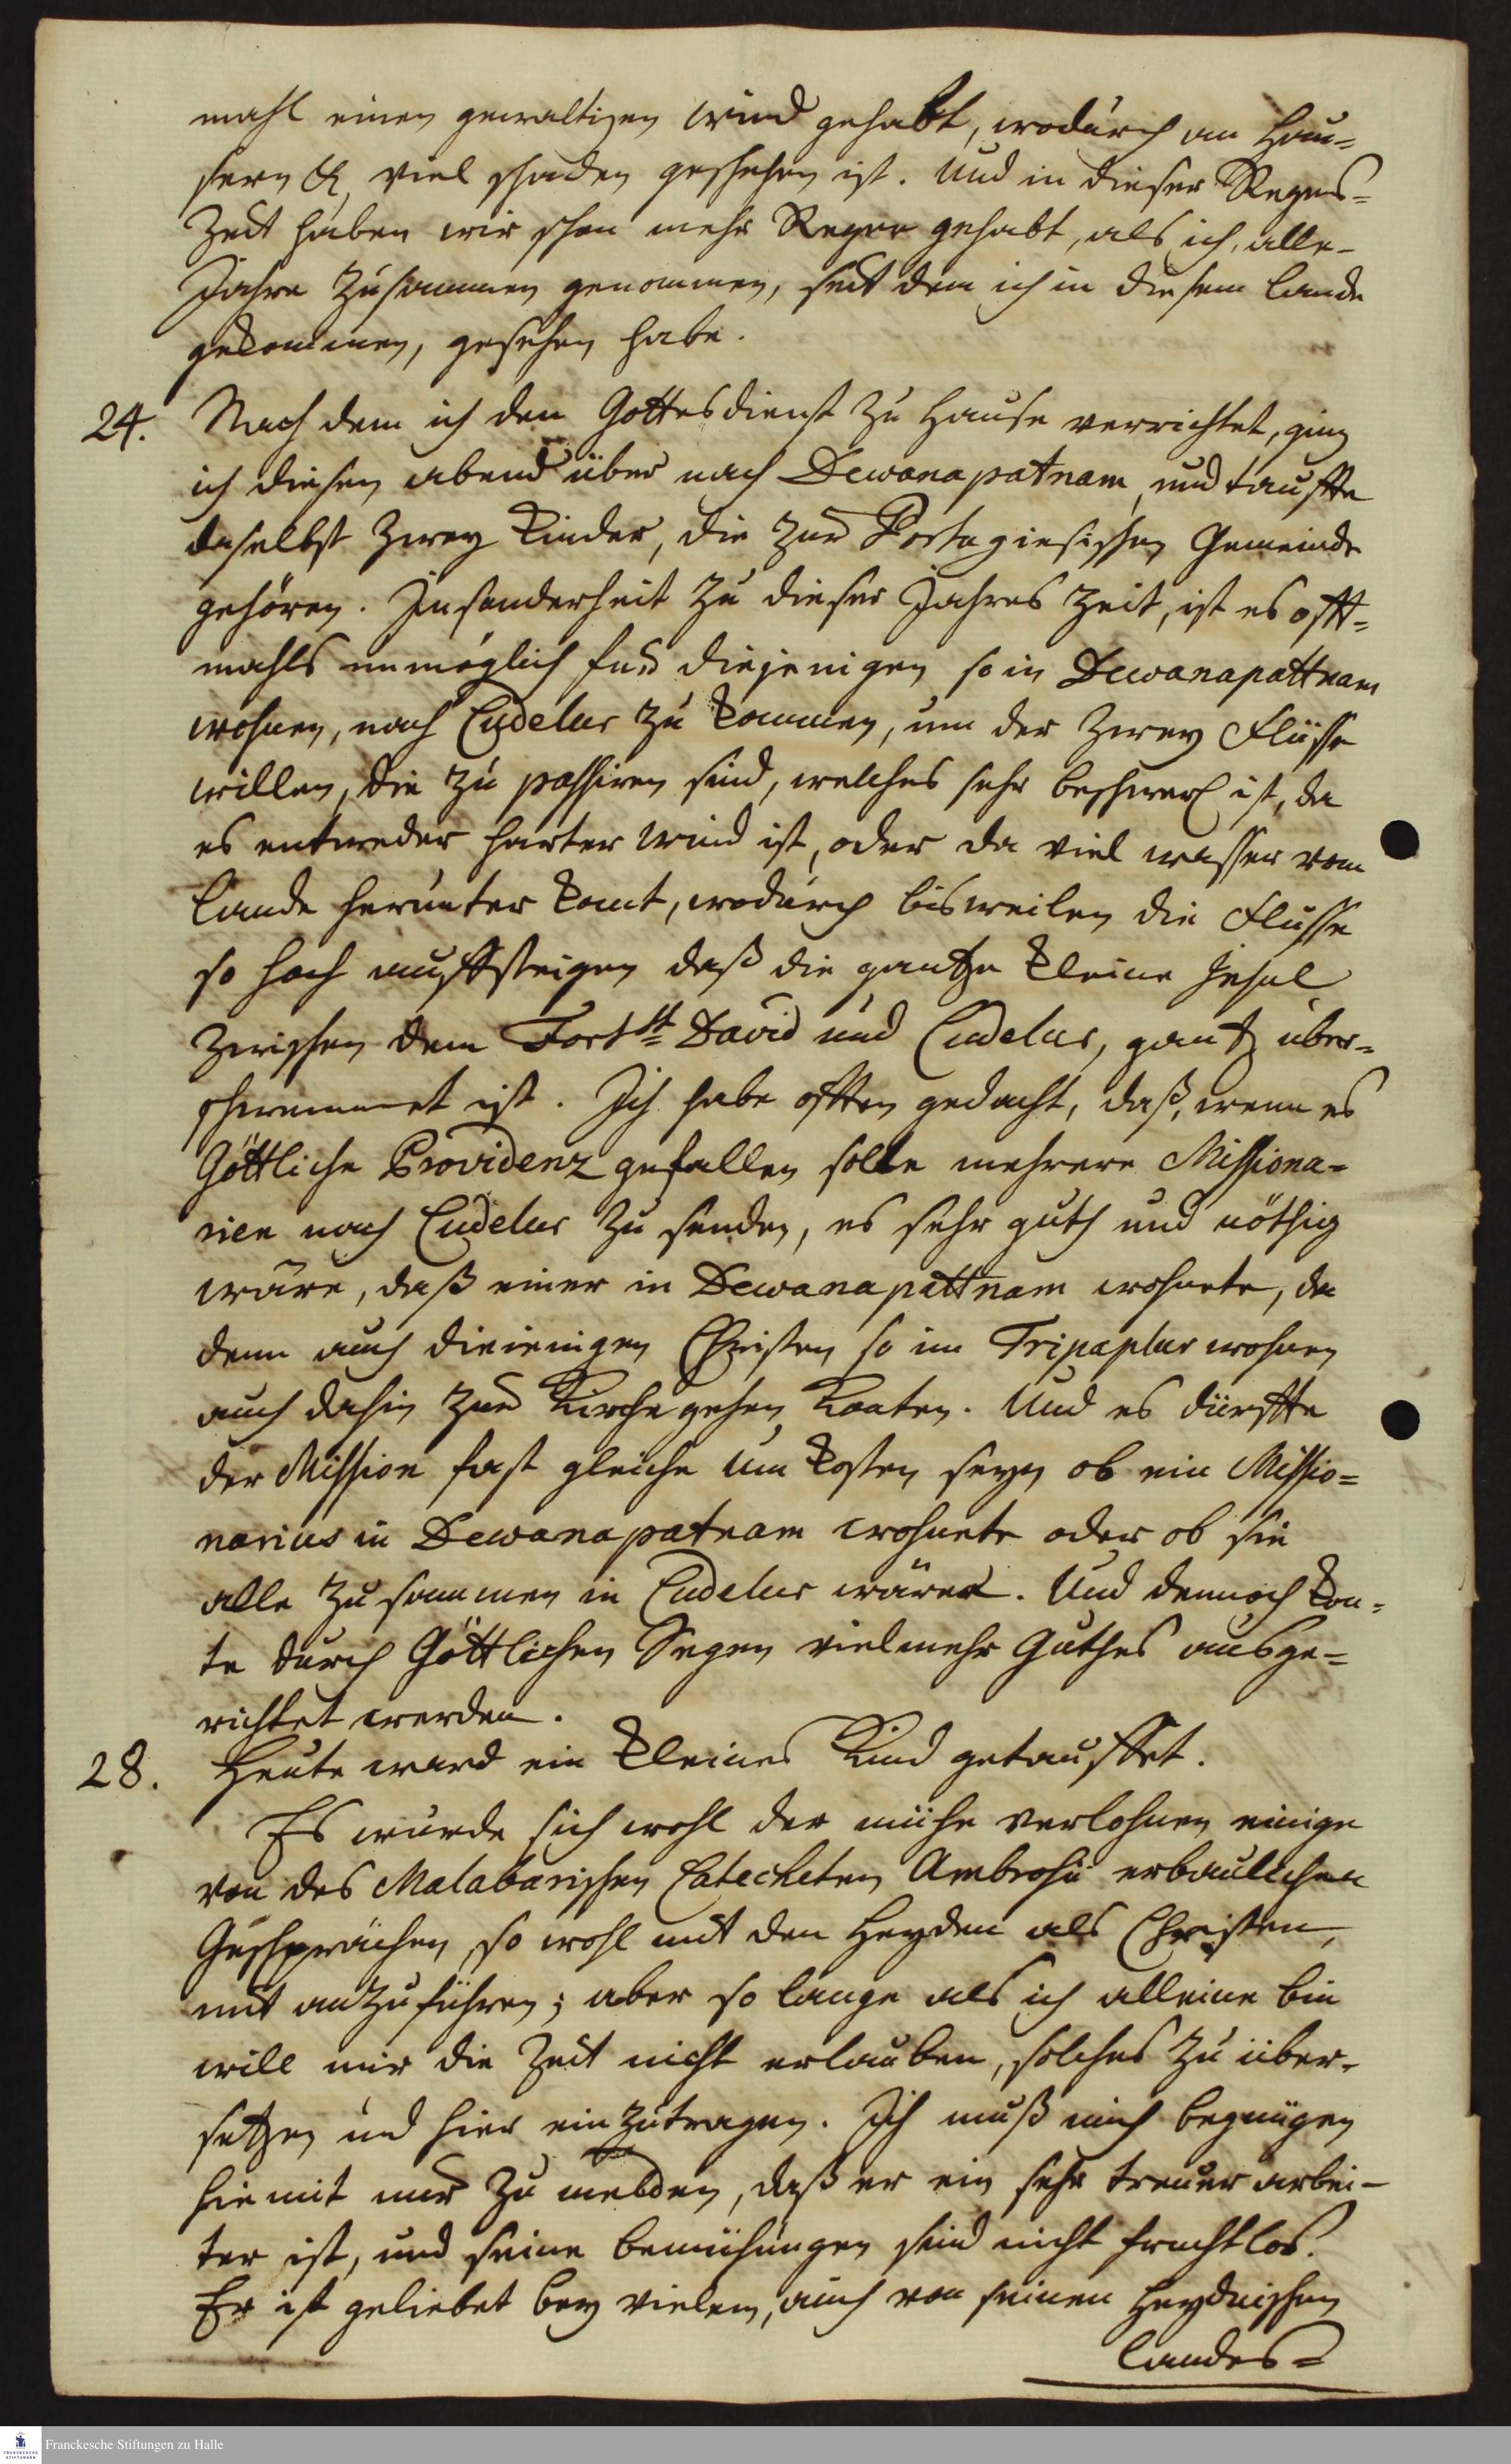 mahl einen gewaltigen wind gehabt, wodurch an Hau=
sern &, viel schaden geschehen ist. Und in dieser Regens=
Zeit haben wir schon mehr Regen gehabt, als ich, alle
Jahre zusammen genommen, seit dem ich in diesem Lande
gekommen, gesehen habe.
24. Nach dem ich den Gottesdienst zu Hause verrichtet, ging
ich diesen abend über nach Dewanapatnam, und tauffte
daselbst zwey Kinder, die zur Portugiesischen Gemeinde
gehören. Insonderheit zu dieser Jahres Zeit, ist es offt=
mahls unmöglich fur diejenigen so in Dewanapattnam
wohnen, nach Cudelur zu kommen, um der zwey Flüsse
willen, die zu passiren sind, welches sehr beschwerl ist, da
es entweder harter wind ist, oder da viel wasser vom
Lande herunter komt, wodurch bisweilen die Flusse
so hoch auffsteigen daß die gantze kleine Insul
zwischen dem Fort St David und Cudelur, gantz über=
schwemmet ist. Ich habe offten gedacht, daß, wenn es
Göttliche Providenz gefallen solte mehrere Missiona=
rien nach Cudelur zu senden, es sehr guth und nöthig
wäre, daß einer in Dewanapattnam wohnete, da
denn auch dieienigen Christen so im Tripaplur wohnen
auch dahin zur Kirche gehen konten. Und es dürffte
der Mission fast gleiche um kosten seyn ob ein Missio=
narius in Dewanapatnam wohnete oder ob sie
alle zusammen in Cudelur wären. Und dennoch kon=
te durch Göttlichen Segen vielmehr Guthes ausge=
richtet werden.
28. Heute ward ein kleines Kind getauffet.
Es wurde sich wohl der mühe verlohnen einige
von des Malabarischen Catecheten Ambrosii erbaulichen
Gesprächen, so wohl mit den Heyden als Christen,
mit anzuführen; aber so lange als ich alleine bin
will mir die Zeit nicht erlauben, solches zu über=
setzen und hier einzutragen. Ich muß mich begnügen
hiemit nur zu melden, daß er ein sehr treuer arbei=
ter ist, und seine bemühungen sind nicht fruchtlos.
Er ist geliebet bey vielen, auch von seinen Heydnischen
Landes=
Franckesche Stiftungen zu Halle